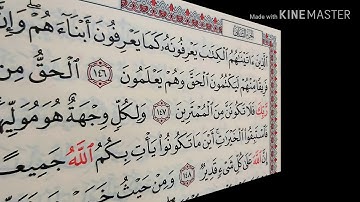 Made with KINEMASTER
ٱلَّذِينَ ءَاتَيْنَٰهُمُ ٱلْكِتَٰبَ يَعْرِفُونَهُۥ كَمَا يَعْرِفُونَ أَبْنَآءَهُمْ ۖ وَإِنَّ
فَرِيقًا مِّنْهُمْ لَيَكْتُمُونَ ٱلْحَقَّ وَهُمْ يَعْلَمُونَ ١٤٦ ٱلْحَقُّ مِن
رَّبِّكَ فَلَا تَكُونَنَّ مِنَ ٱلْمُمْتَرِينَ ١٤٧ وَلِكُلٍّ وِجْهَةٌ هُوَ مُوَلِّيهَا
فَٱسْتَبِقُوا۟ ٱلْخَيْرَٰتِ أَيْنَ مَا تَكُونُوا۟ يَأْتِ بِكُمُ ٱللَّهُ جَمِيعًا
إِنَّ ٱللَّهَ عَلَىٰ كُلِّ شَىْءٍ قَدِيرٌ ١٤٨ وَمِنْ حَيْثُ